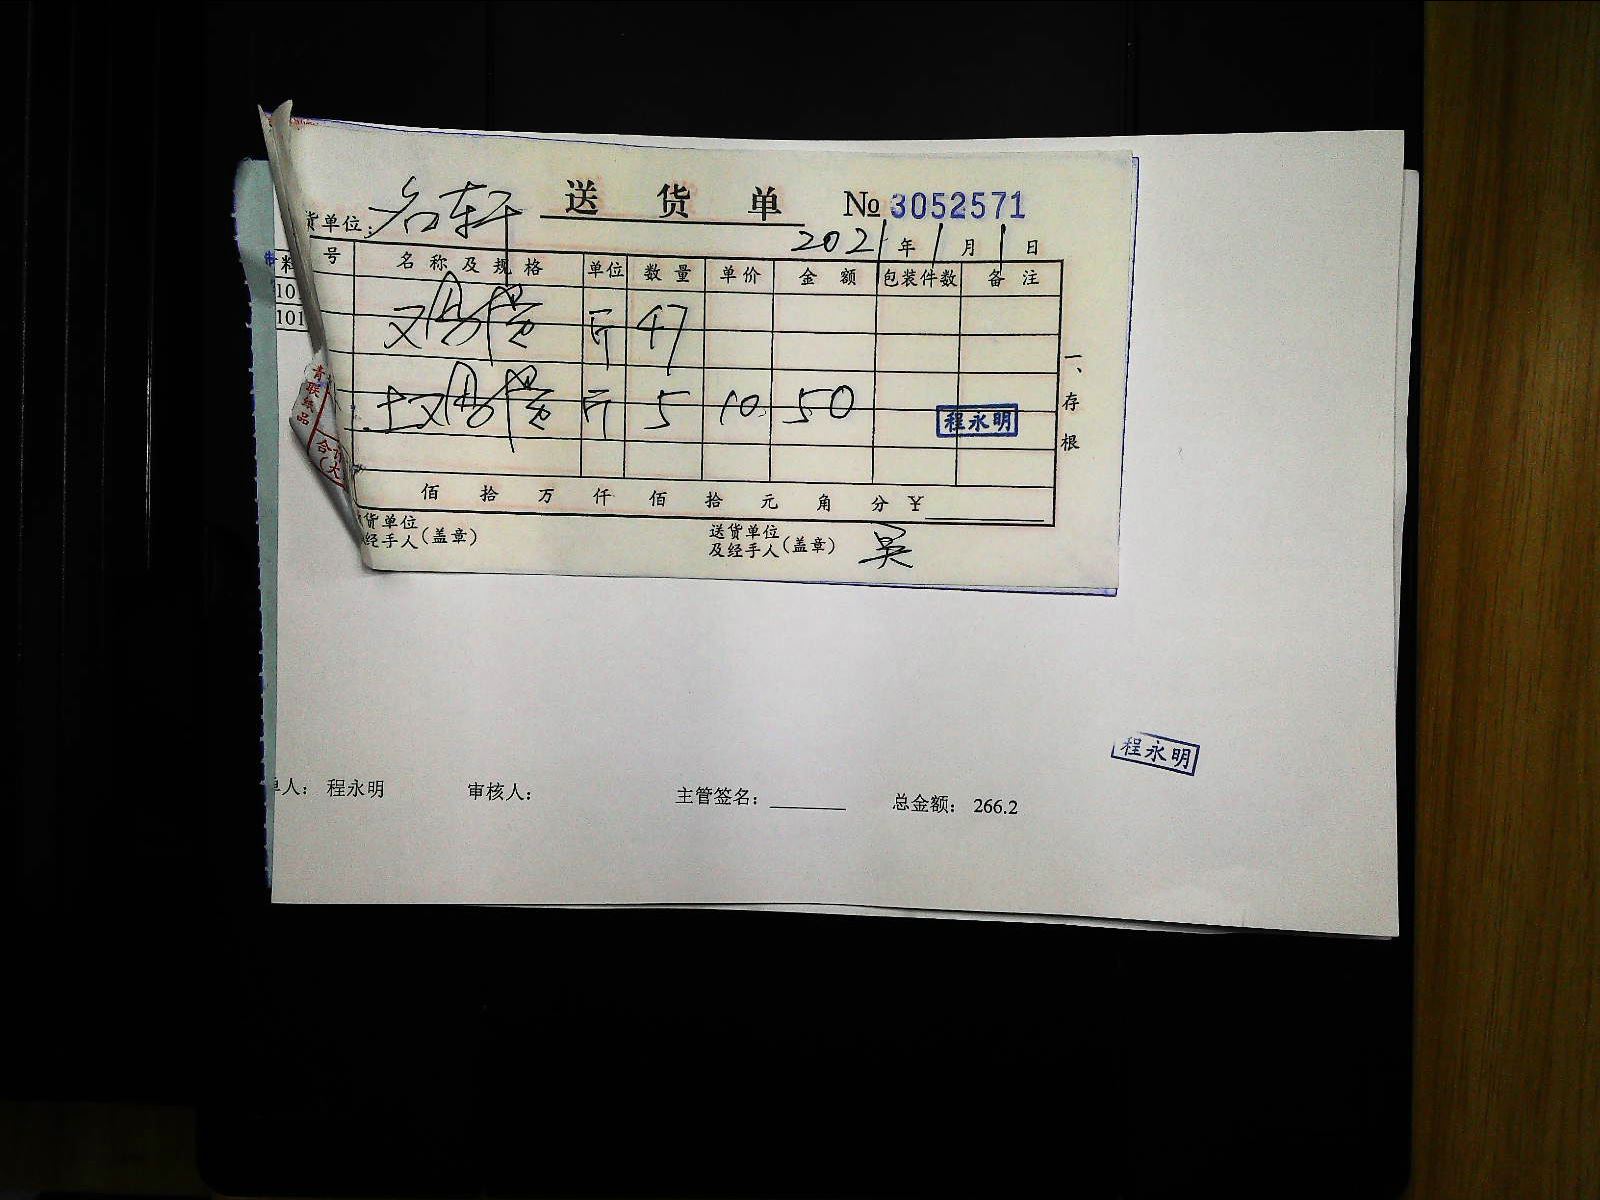 送货单 № 3052571
货单位: 名轩
2021年1月1日
号 名称及规格 单位 数量 单价 金额 包装件数 备注
料
101
鸡蛋 斤 47
土鸡蛋 斤 5 10 50
程永明
一、存根
青联纸品
合计
佰 拾 万 仟 佰 拾 元 角 分 ¥
货单位
经手人(盖章)
送货单位
及经手人(盖章) 吴
程永明
单人: 程永明 审核人: 主管签名: 总金额: 266.2